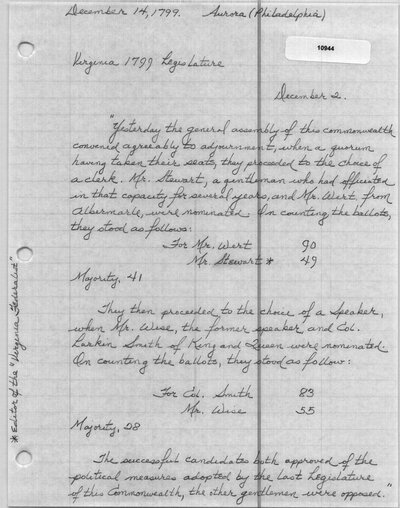 December 14, 1799. Aurora (Philadelphia)
10944
Virginia 1799 Legislature
December 2.
"Yesterday the general assembly of this commonwealth
convened agreeably to adjournment, when a quorum
having taken their seats, they proceeded to the choice of
a clerk. Mr. Stewart, a gentleman who had officiated
in that capacity for several years, and Mr. Wert, from
Albermarle, were nominated. On counting, the ballots,
they stood as follows:
For Mr. Wert 90
Mr. Stewart * 49
Majority, 41
They then proceeded to the choice of a Speaker,
when Mr. Wise, the former speaker and Col.
Larkin Smith of King and Queen were nominated.
On counting the ballots, they stood as follow:
For Col. Smith 83
Mr. Wise 55
Majority, 28
The successful candidates both approved of the
political measures adopted by the last Legislature
of this Commonwealth, the other gentlemen were opposed."
* Editor of the "Virginia Federalist"